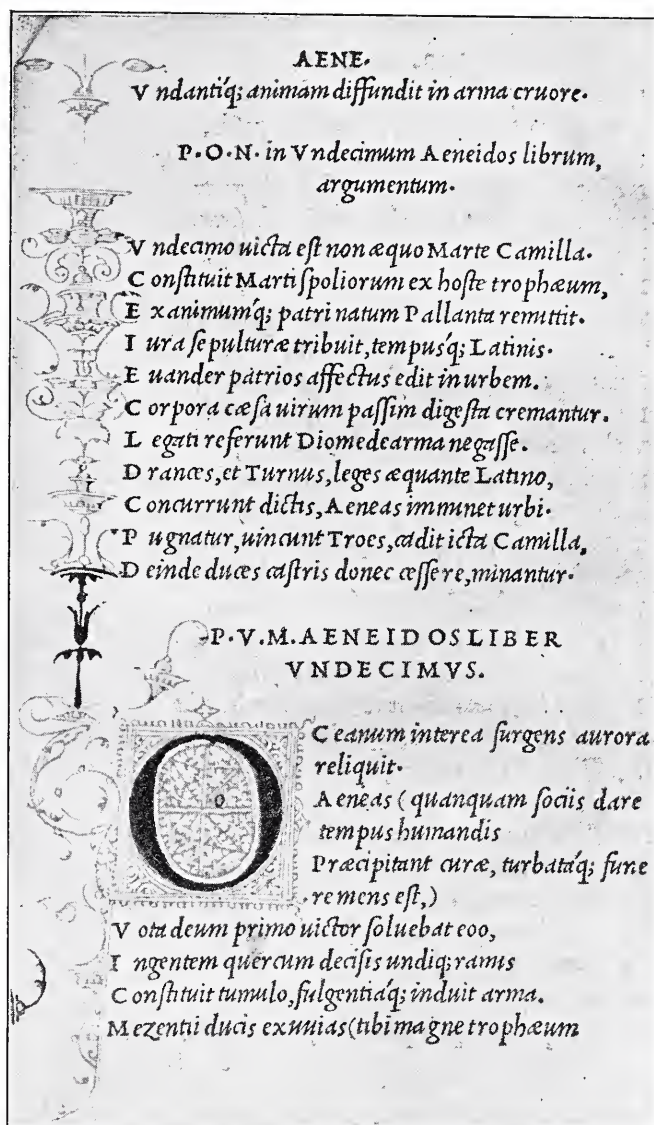 AENE.
V ndantiq́; animam diffundit in arma cruore.
P. O. N. in Vndecimum Aeneidos librum,
argumentum.
V ndecimo uicta est non æquo Marte Camilla.
C onstituit Marti spoliorum ex hoste trophæum,
E xanimumq́; patri natum Pallanta remittit.
I ura sepulturæ tribuit, tempusq́; Latinis.
E uander patrios affectus edit in urbem.
C orpora cæsa uirum passim digesta cremantur.
L egati referunt Diomede arma negasse.
D rances, et Turnus, leges æquante Latino,
C oncurrunt dictis, Aeneas imminet urbi.
P ugnatur, uincunt Troes, cadit icta Camilla,
D einde duces castris donec cessere, minantur.
P. V. M. AENEIDOS LIBER
VNDECIMVS.
O C eanum interea surgens aurora
reliquit.
A eneas ( quanquam sociis dare
tempus humandis
Præcipitant curæ, turbataq́; fune
re mens est,)
V ota deum primo uictor soluebat eoo,
I ngentem quercum decisis undiq; ramis
C onstituit tumulo, fulgentiaq́; induit arma.
M ezentii ducis exuuias (tibi magne trophæum